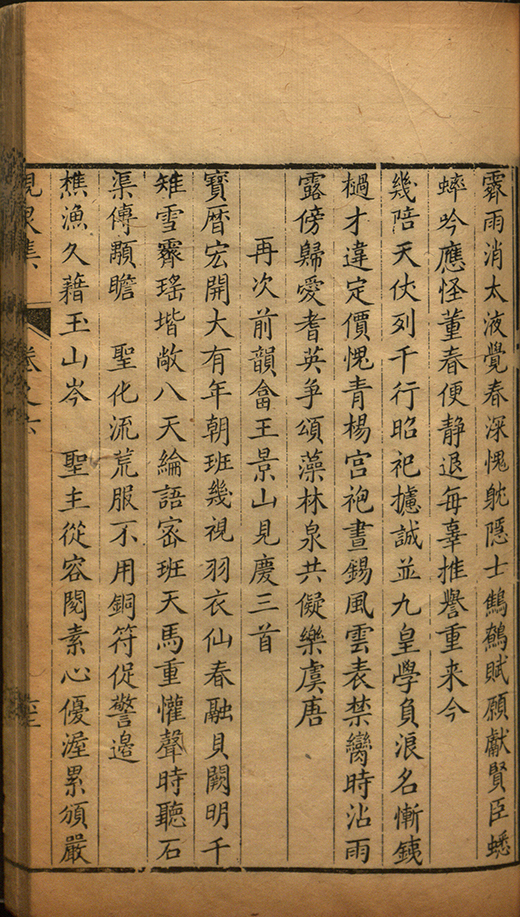 霽雨消太液覺春深愧躭隱士鷦鷯賦願獻賢臣蟋
蟀吟應怪董春便静退每辜推譽重来今
幾陪天仗列千行昭祀攄誠並九皇學負浪名慚銕
檛才違定價愧青楊宫袍晝錫風雲表禁臠時沾雨
露傍歸愛耆英爭頌藻林泉共儗樂虞唐
再次前韻畣王景山見慶三首
寳暦宏開大有年朝班幾視羽衣仙春融貝闕明千
雉雪霽瑤堦敞八天綸語宻班天馬重懽聲時聽石
渠傳顒瞻 聖化流荒服不用銅符促警邉
樵漁久藉玉山岑 聖主從容閱素心優渥累頒嚴
集 卷之六